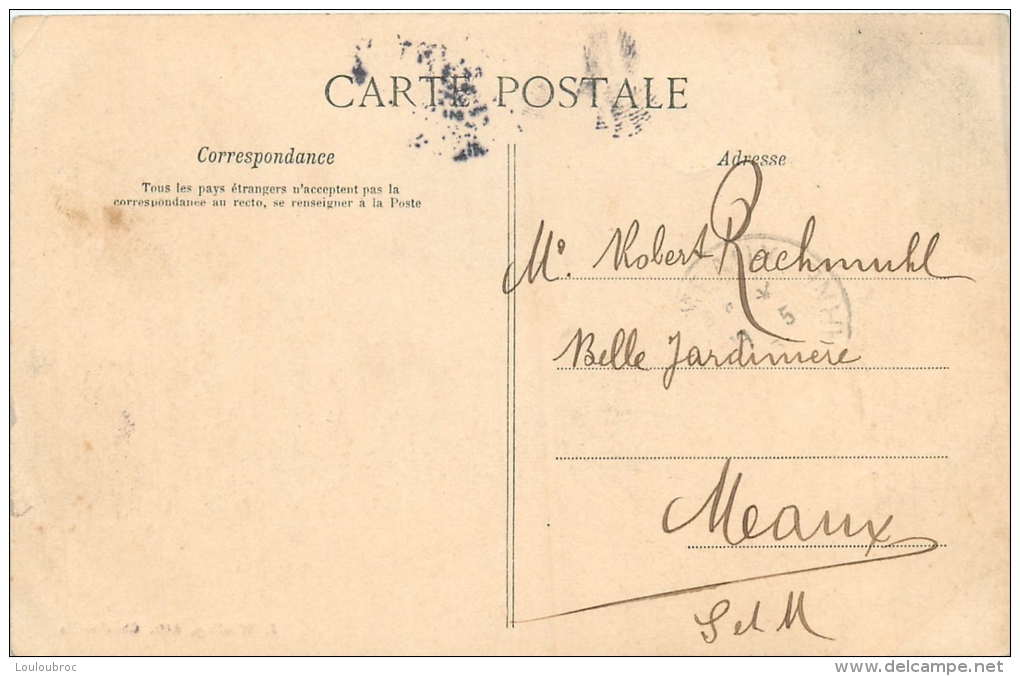 CARTE POSTALE
Correspondance
Tous les pays étrangers n'acceptent pas la
correspondance au recto, se renseigner à la Poste
Adresse
Mr. Robert Rachmuhl
Belle Jardinière
Meaux
S et M
Louloubroc
www.delcampe.net